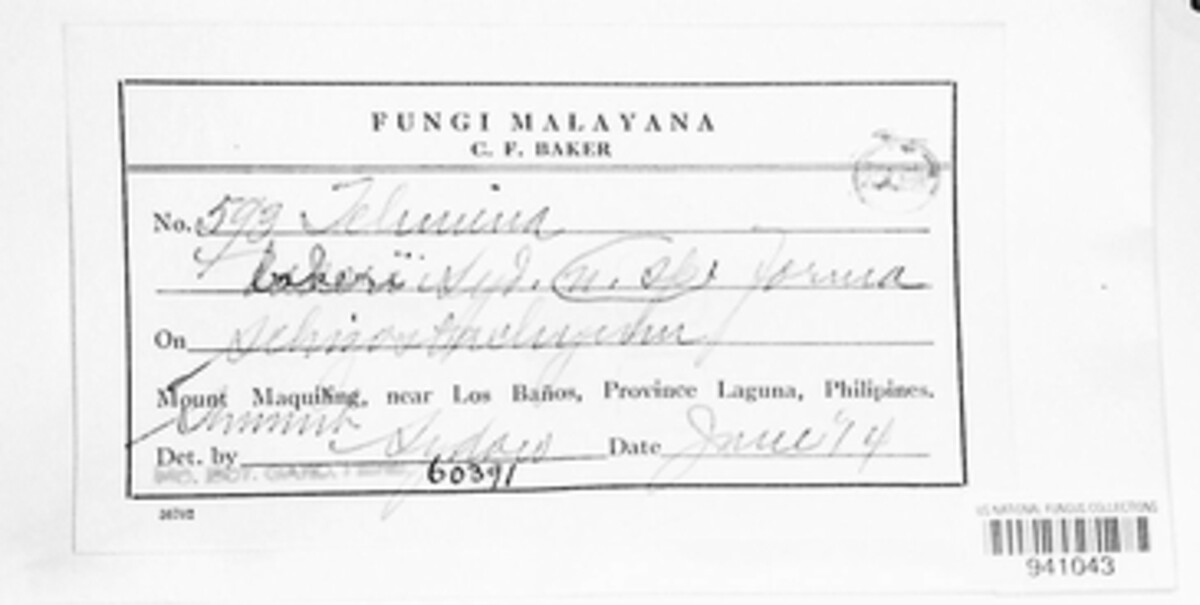 FUNGI MALAYANA
C. F. BAKER
No. 593 Telimena
bakeri Syd. n. sp. forma
On Schizostachyum
Mount Maquiling, near Los Baños, Province Laguna, Philipines.
Summit
Det. by Sydow Date June '14
MO. BOT. GARD. HERB.
60391
US NATIONAL FUNGUS COLLECTIONS
941043